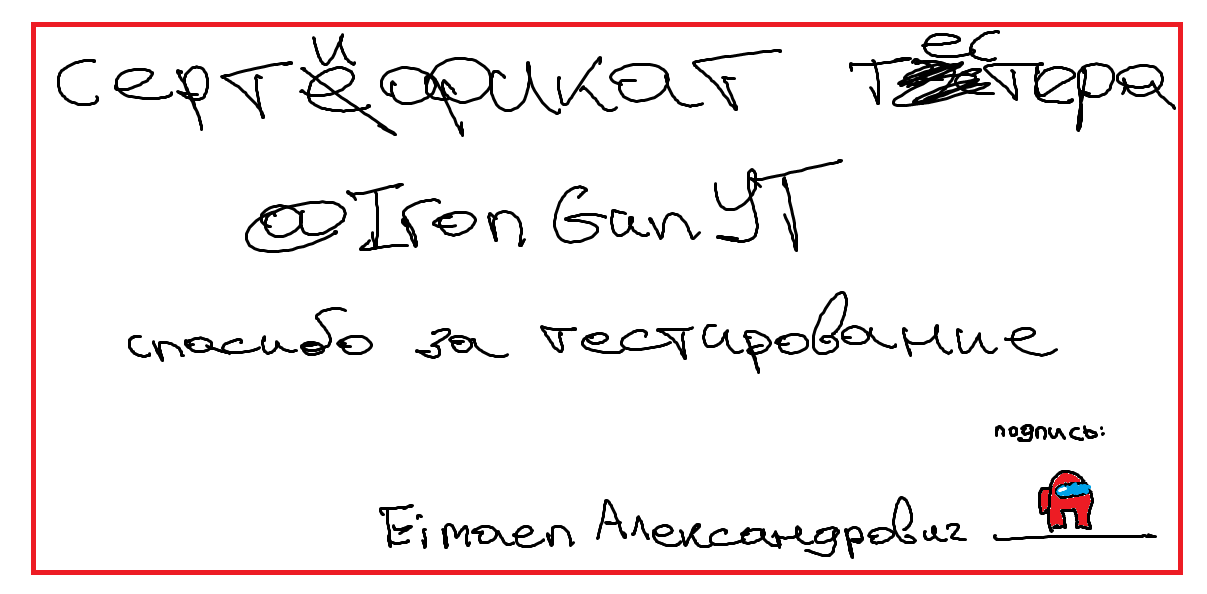 сертификат тестера
@IronGunYT
спасибо за тестирование
подпись:
Eimaen Александрович